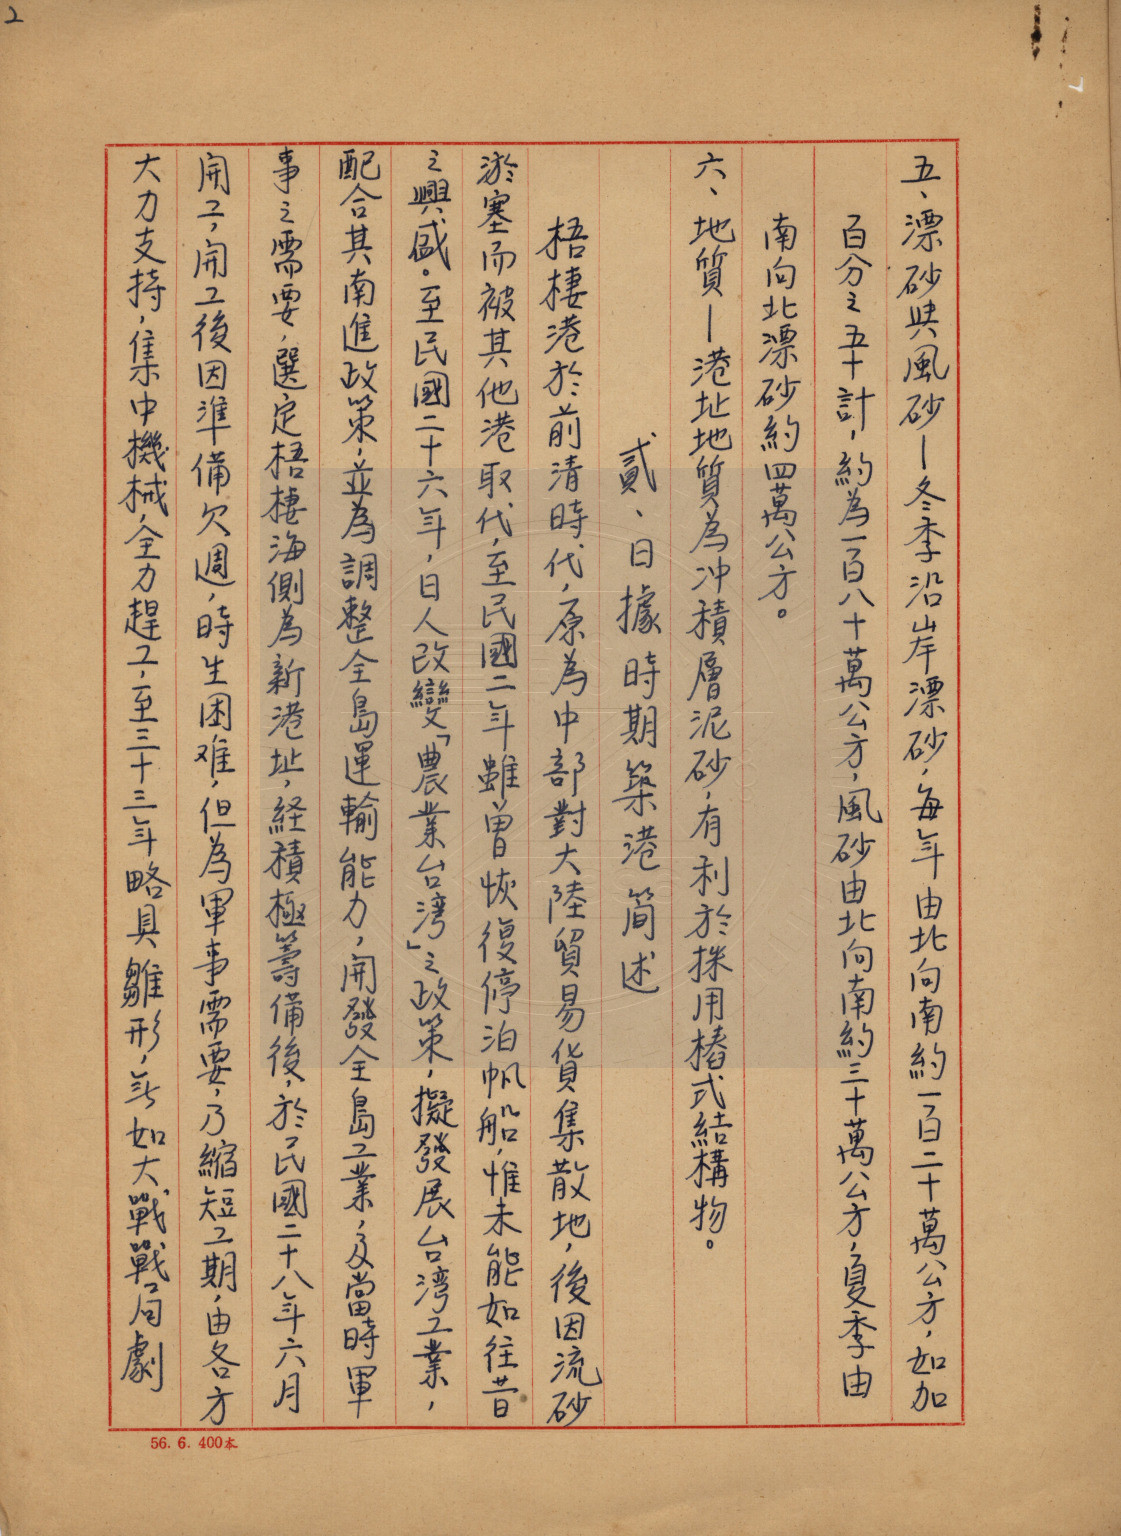 2
五、漂砂與風砂—冬季沿岸漂砂，每年由北向南約一百二十萬公方，如加
百分之五十計，約為一百八十萬公方，風砂由北向南約三十萬公方，夏季由
南向北漂砂約四萬公方。
六、地質—港址地質為冲積層泥砂，有利於採用樁式結構物。
貳、日據時期築港簡述
梧棲港於前清時代，原為中部對大陸貿易貨集散地，後因流砂
淤塞而被其他港取代，至民國二年雖曾恢復停泊帆船，惟未能如往昔
之興盛。至民國二十六年，日人改變「農業台湾」之政策，擬發展台湾工業，
配合其南進政策，並為調整全島運輸能力，開發全島工業，及當時軍
事之需要，選定梧棲海側為新港址，経積極籌備後，於民國二十八年六月
開工，開工後因準備欠週，時生困难，但為軍事需要，乃縮短工期，由各方
大力支持，集中機械，全力趕工，至三十三年略具雛形，無如大戰戰局劇
56. 6. 400本